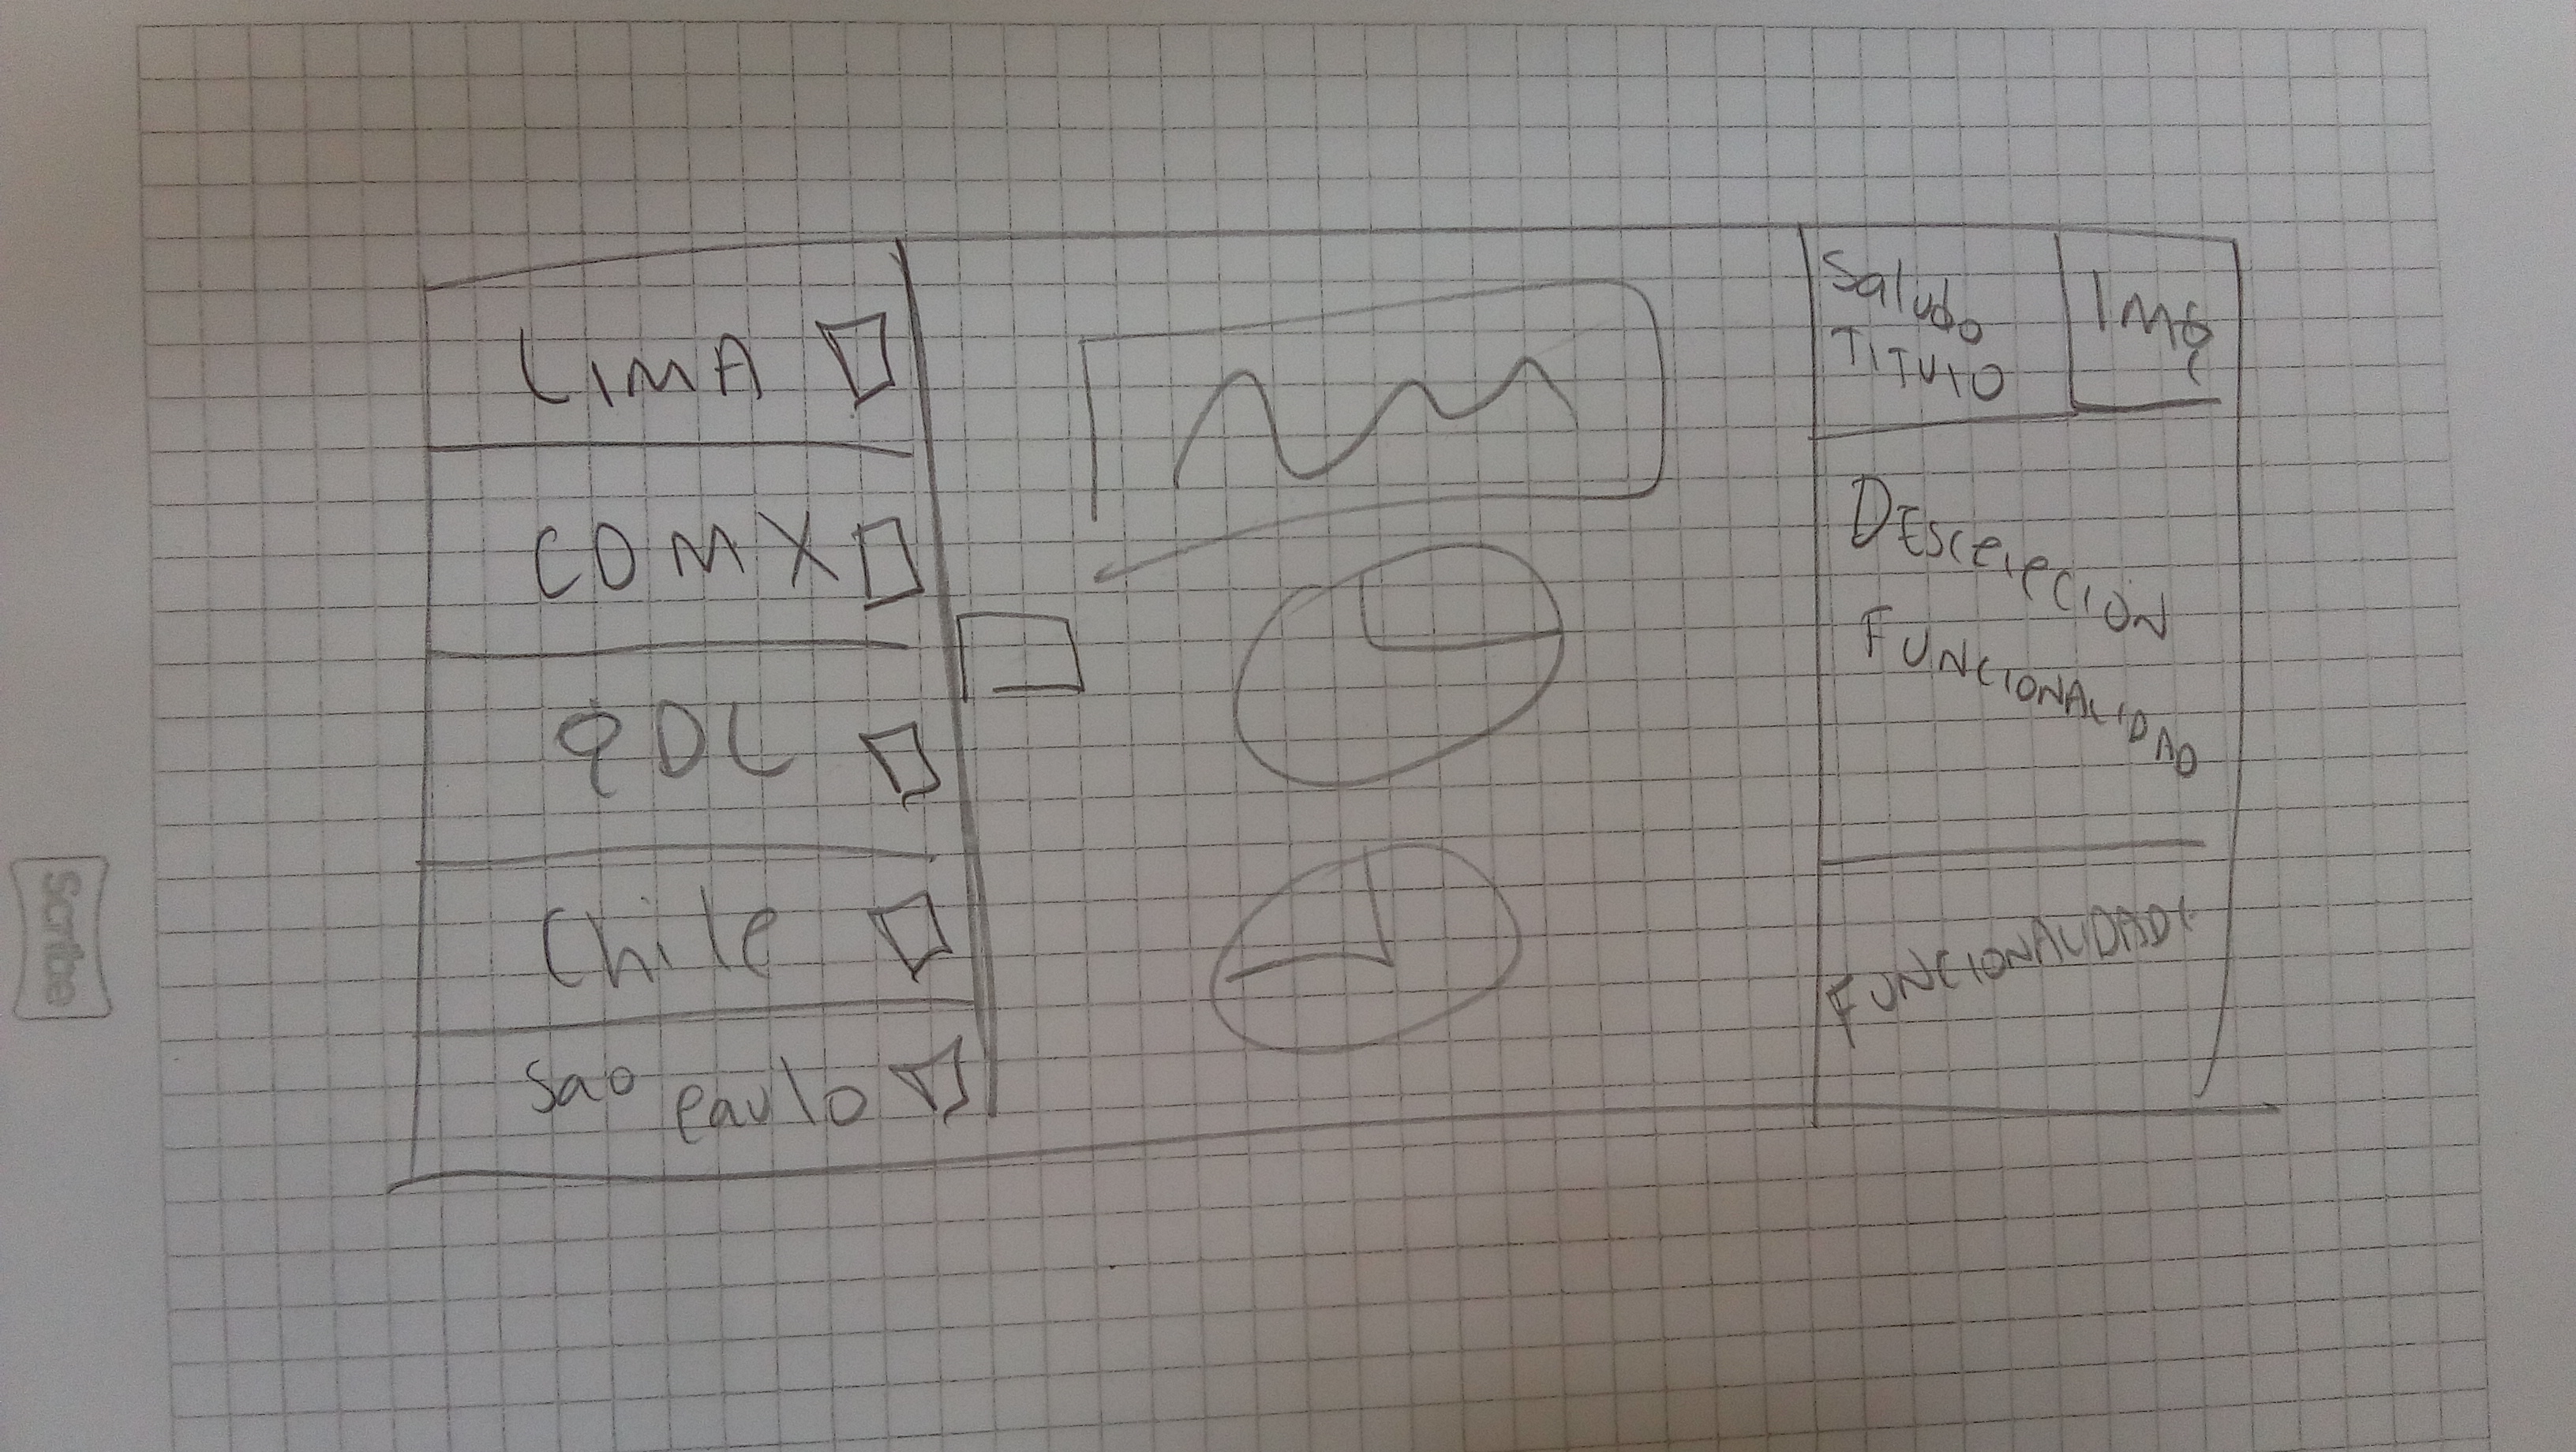 LIMA
CDMX
GDL
Chile
Sao Paulo
Saludo
TITULO
IMG
DESCRIPCION
FUNCIONALIDAD
FUNCIONALIDAD
Scribe